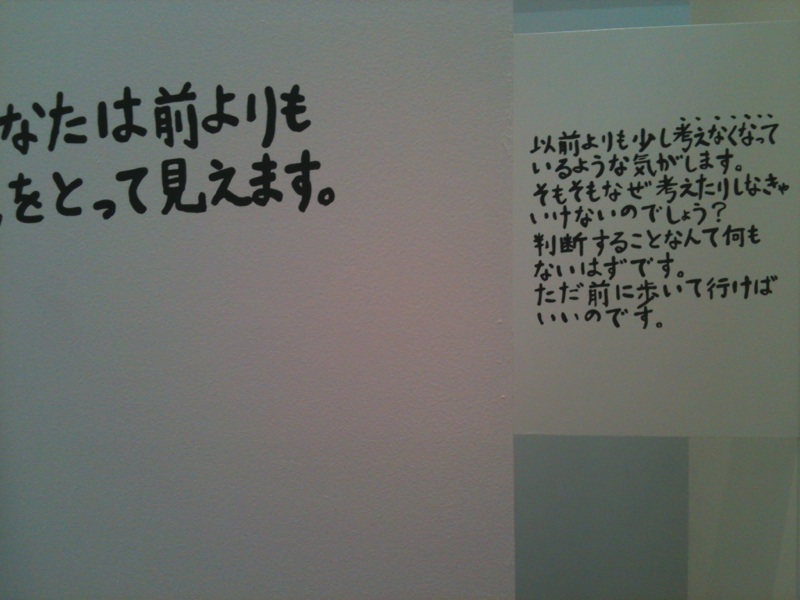 なたは前よりも
をとって見えます。
以前よりも少し考えなくなって
いるような気がします。
そもそもなぜ考えたりしなきゃ
いけないのでしょう?
判断することなんて何も
ないはずです。
ただ前に歩いて行けば
いいのです。